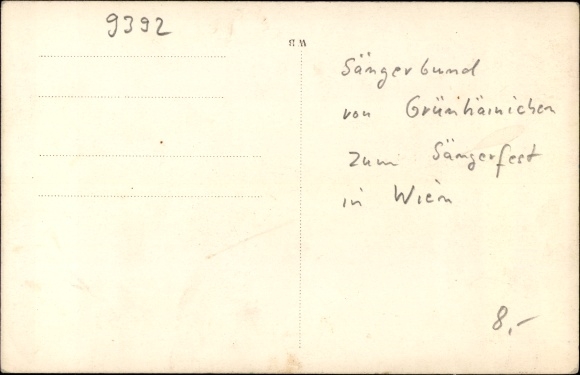 9392
W B
Sängerbund
von Grünhainichen
zum Sängerfest
in Wien
8,-